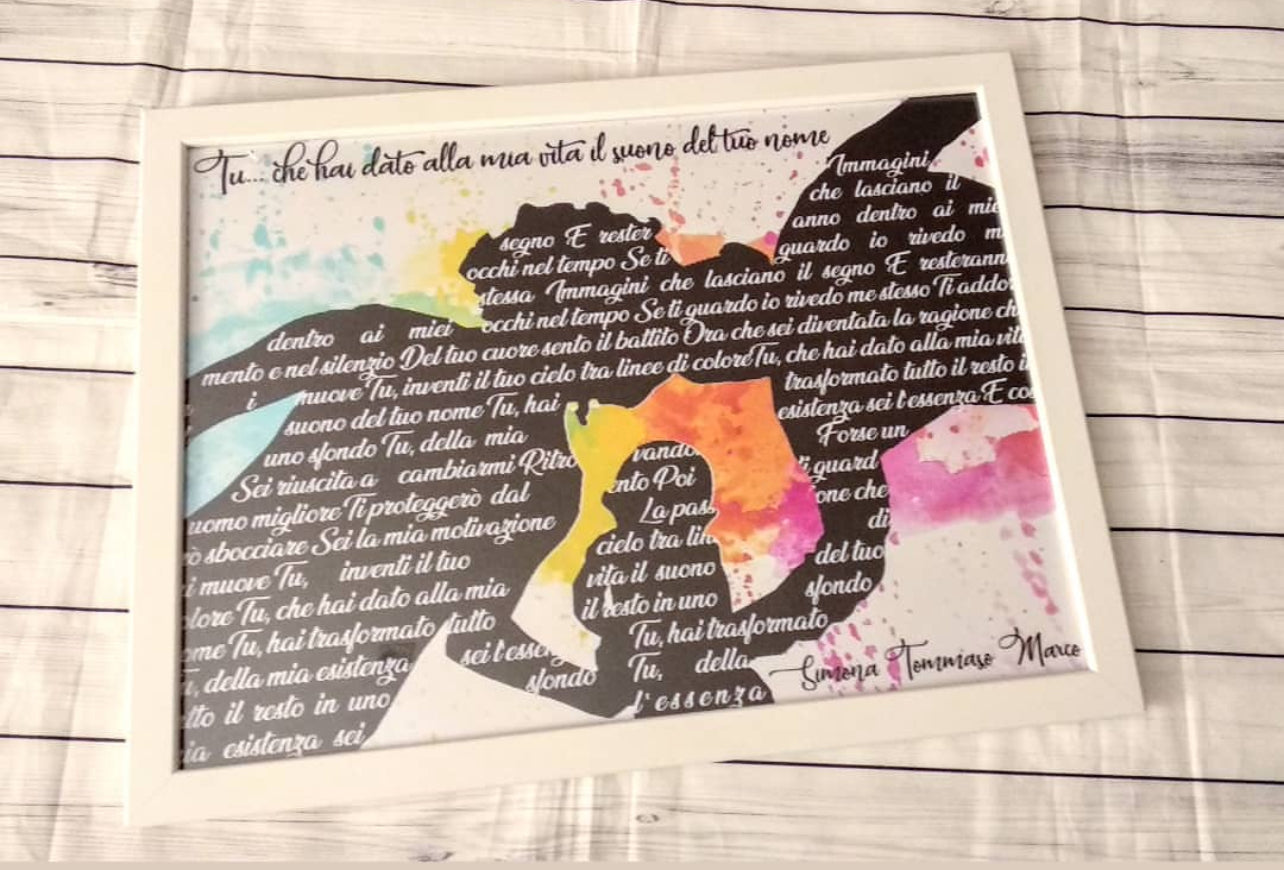 Tu... che hai dato alla mia vita il suono del tuo nome
Immagini
che lasciano il
anno dentro ai mie
segno E rester guardo io rivedo m
occhi nel tempo Se ti
stessa Immagini che lasciano il segno E resterann
dentro ai miei occhi nel tempo Se ti guardo io rivedo me stesso Ti addor
mento e nel silenzio Del tuo cuore sento il battito Ora che sei diventata la ragione ch
i muove Tu, inventi il tuo cielo tra linee di coloreTu, che hai dato alla mia vita
suono del tuo nome Tu, hai trasformato tutto il resto i
uno sfondo Tu, della mia esistenza sei l'essenza E co
Sei riuscita a cambiarmi Ritro vando Forse un
uomo migliore Ti proteggerò dal ento Poi i guard
ò sbocciare Sei la mia motivazione La pas one che
i muove Tu, inventi il tuo cielo tra lin di
lore Tu, che hai dato alla mia vita il suono del tuo
ome Tu, hai trasformato tutto il resto in uno sfondo
, della mia esistenza sei l'essen Tu, hai trasformato
tto il resto in uno sfondo Tu, della
ia esistenza sei l'essenza
Simona Tommaso Marco